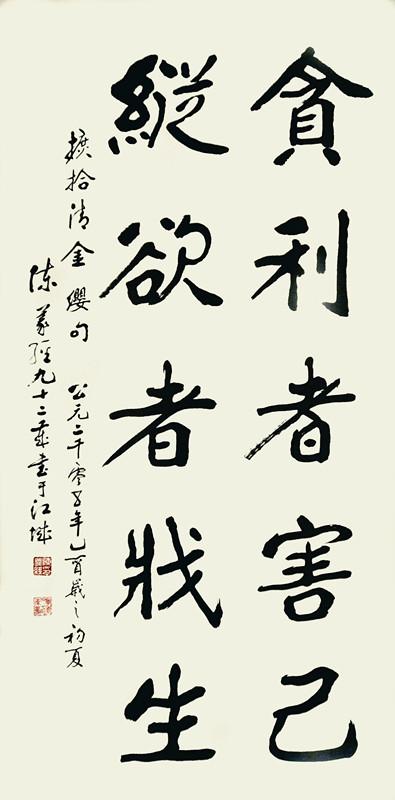 貪利者害己
縱欲者戕生
摭拾清金纓句 公元二千零五年乙酉歲之初夏
陳義經九十二歲書于江城